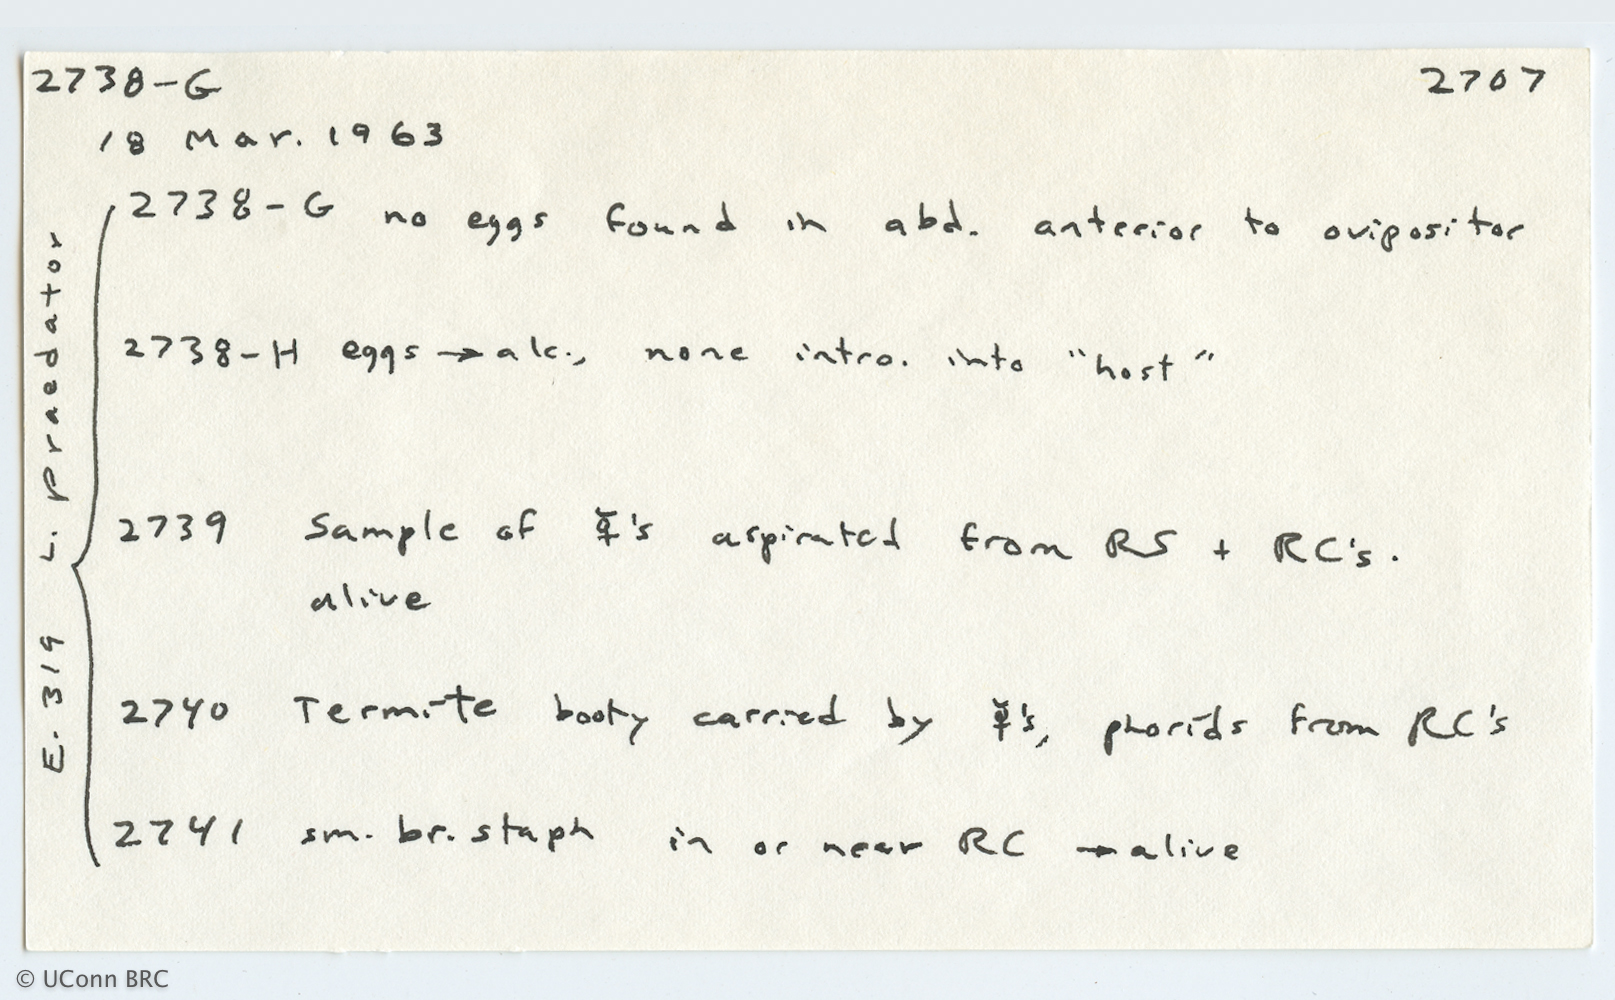 2738-G 2707
18 Mar. 1963
2738-G no eggs found in abd. anterior to ovipositor
2738-H eggs → alc., none intro. into "host"
2739 Sample of ☿'s aspirated from RS + RC's.
alive
2740 Termite booty carried by ☿'s, phorids from RC's
2741 sm. br. staph in or near RC → alive
E. 319 L. praedator
© UConn BRC